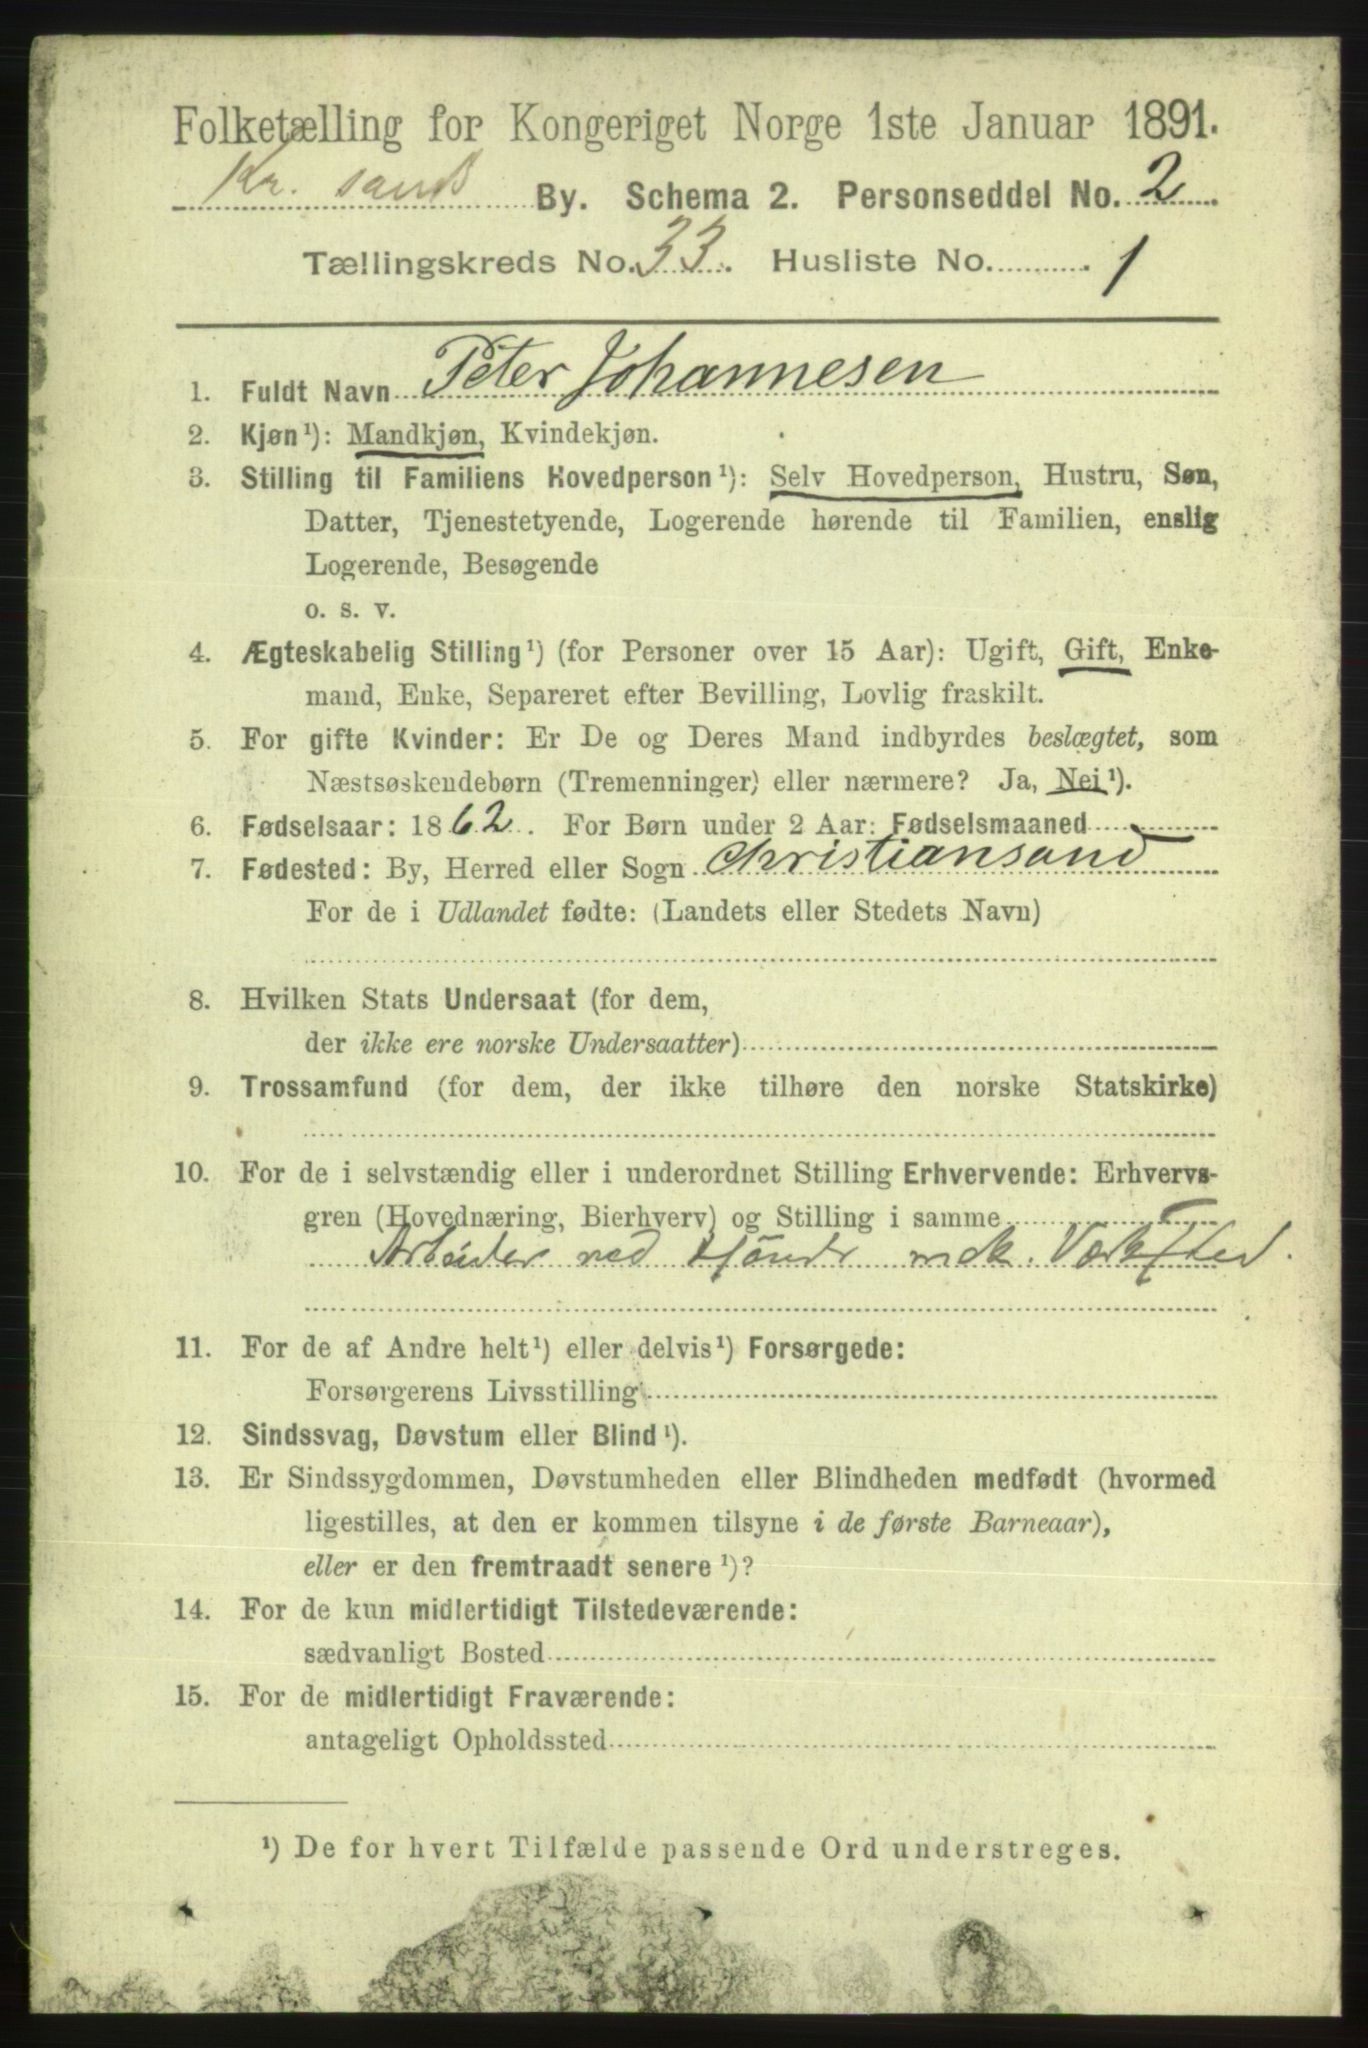 Folketælling for Kongeriget Norge 1ste Januar 1891.
Kr. sands By. Schema 2. Personseddel No. 2
Tællingskreds No. 33. Husliste No. 1
1. Fuldt Navn Peter Johannesen
2. Kjøn¹): Mandkjøn, Kvindekjøn.
3. Stilling til Familiens Hovedperson¹): Selv Hovedperson, Hustru, Søn,
Datter, Tjenestetyende, Logerende hørende til Familien, enslig
Logerende, Besøgende
o. s. v.
4. Ægteskabelig Stilling¹) (for Personer over 15 Aar): Ugift, Gift, Enke-
mand, Enke, Separeret efter Bevilling, Lovlig fraskilt.
5. For gifte Kvinder: Er De og Deres Mand indbyrdes beslægtet, som
Næstsøskendebørn (Tremenninger) eller nærmere? Ja, Nei¹).
6. Fødselsaar: 1862. For Børn under 2 Aar: Fødselsmaaned
7. Fødested: By, Herred eller Sogn Christiansand
For de i Udlandet fødte: (Landets eller Stedets Navn)
8. Hvilken Stats Undersaat (for dem,
der ikke ere norske Undersaatter)
9. Trossamfund (for dem, der ikke tilhøre den norske Statskirke)
10. For de i selvstændig eller i underordnet Stilling Erhvervende: Erhvervs-
gren (Hovednæring, Bierhverv) og Stilling i samme
Arbeider ved mek. Værksted.
11. For de af Andre helt¹) eller delvis¹) Forsørgede:
Forsørgerens Livsstilling
12. Sindssvag, Døvstum eller Blind¹).
13. Er Sindssygdommen, Døvstumheden eller Blindheden medfødt (hvormed
ligestilles, at den er kommen tilsyne i de første Barneaar),
eller er den fremtraadt senere¹)?
14. For de kun midlertidigt Tilstedeværende:
sædvanligt Bosted
15. For de midlertidigt Fraværende:
antageligt Opholdssted
¹) De for hvert Tilfælde passende Ord understreges.